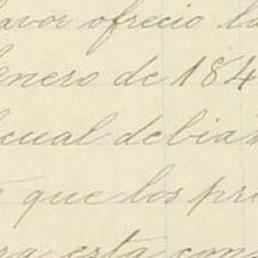 avor ofrecio la
enero de 184
cual debia
que los pr
esta con